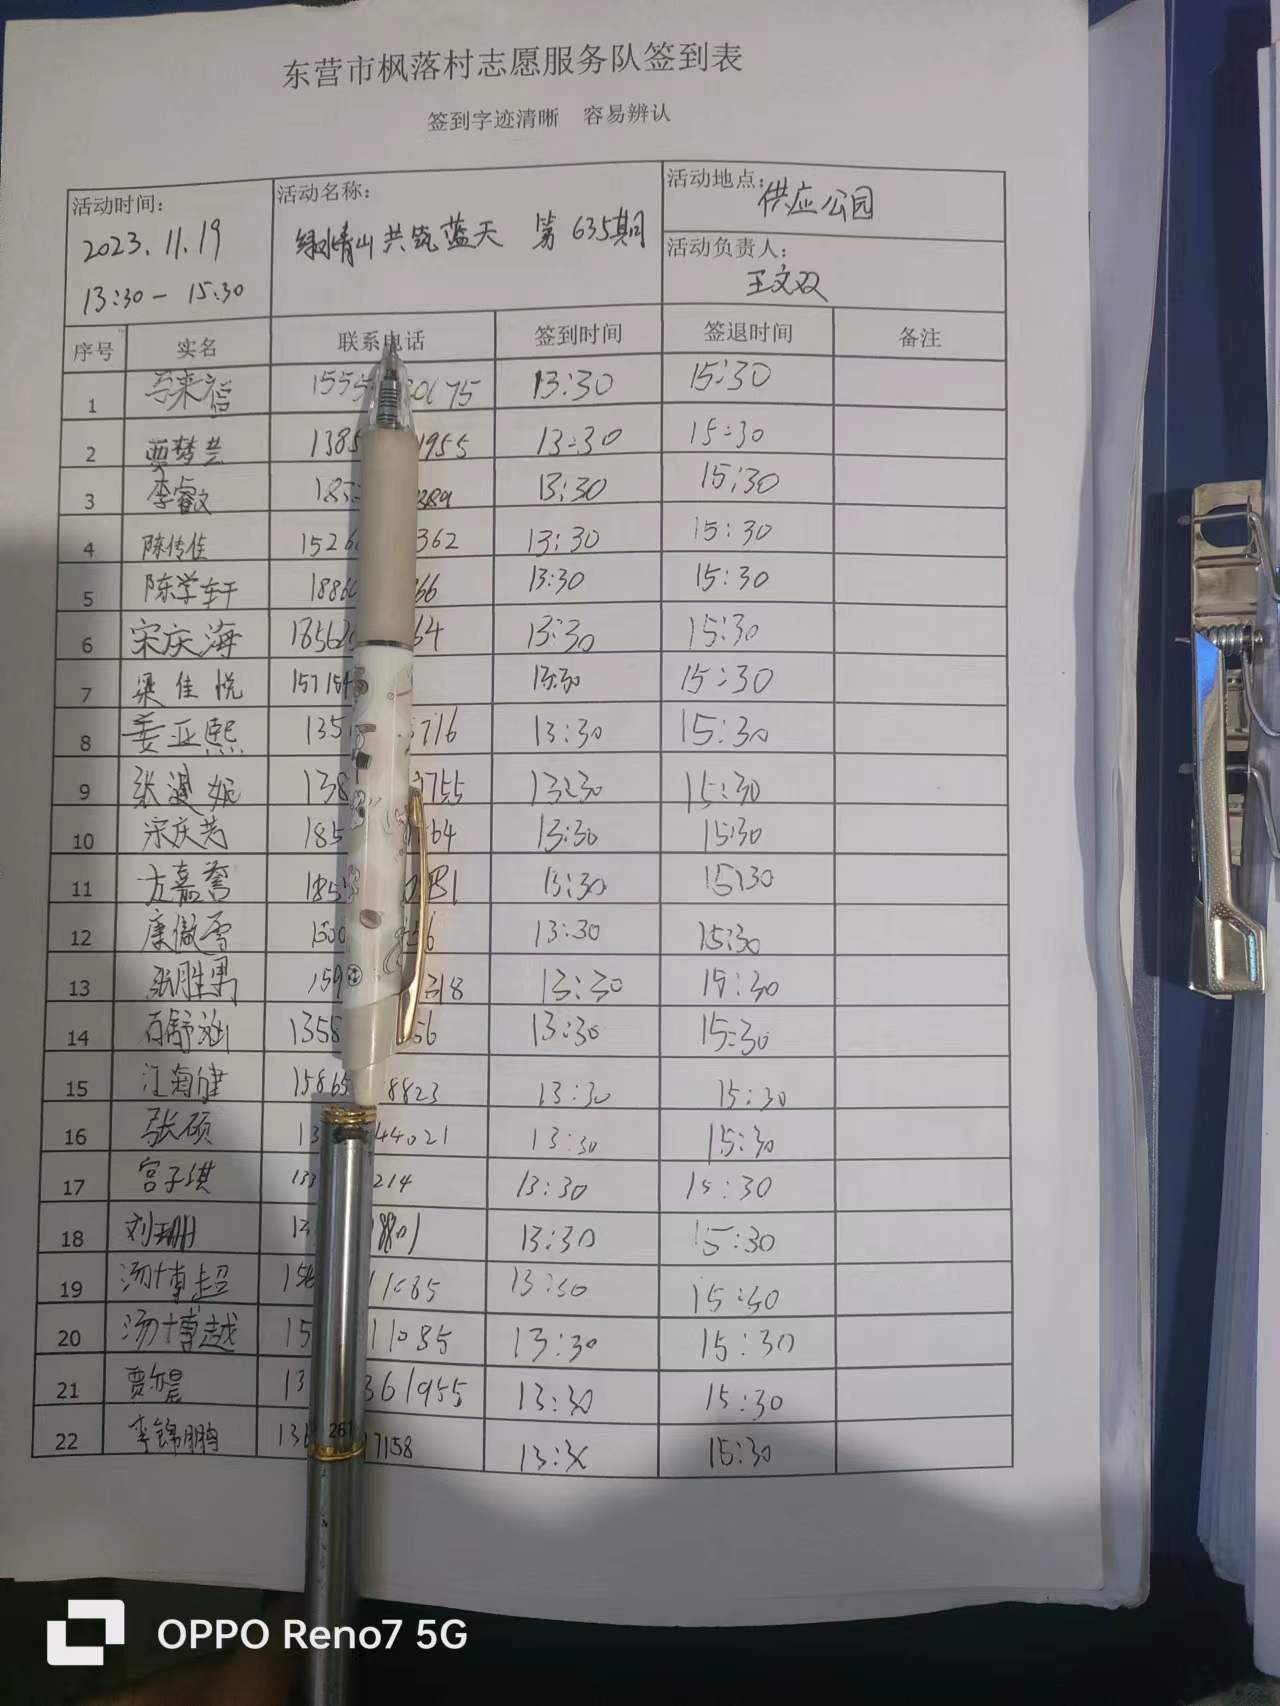 东营市枫落村志愿服务队签到表
签到字迹清晰 容易辨认
活动时间: 2023.11.19 13:30-15:30
活动名称: 绿水青山共筑蓝天 第635期
活动地点: 供应公园
活动负责人: 王文双
序号 实名 联系电话 签到时间 签退时间 备注
1 马来福 1555 75 13:30 15:30
2 贾梦芸 1385 1955 13:30 15:30
3 李睿文 185 389 13:30 15:30
4 陈传佳 1526 362 13:30 15:30
5 陈学轩 1886 66 13:30 15:30
6 宋庆海 1856 64 13:30 15:30
7 梁佳悦 15715 13:30 15:30
8 姜亚熙 135 716 13:30 15:30
9 张 妮 138 755 13:30 15:30
10 宋庆芳 185 64 13:30 15:30
11 方嘉 185 13:30 15:30
12 康傲雪 150 56 13:30 15:30
13 张胜男 159 318 13:30 15:30
14 石舒涵 1358 56 13:30 15:30
15 江海健 15865 8823 13:30 15:30
16 张硕 13 44021 13:30 15:30
17 宫子琪 133 214 13:30 15:30
18 刘珊 13 8801 13:30 15:30
19 汤博超 15 11085 13:30 15:30
20 汤博越 15 11085 13:30 15:30
21 贾 13 361955 13:30 15:30
22 李锦鹏 13 17158 13:3 15:30
261
OPPO Reno7 5G